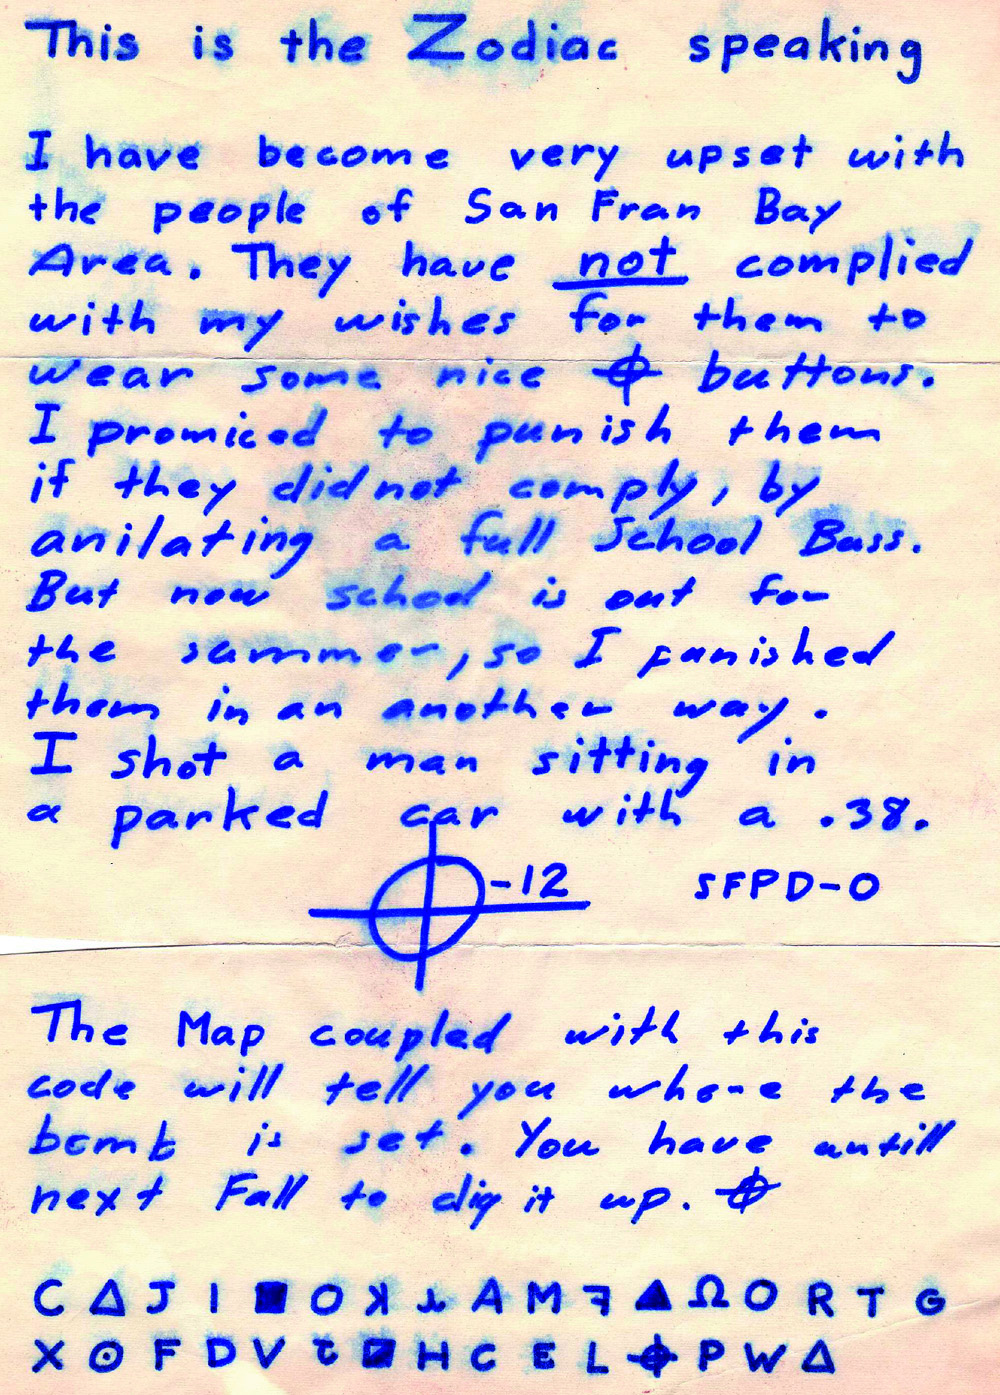 This is the Zodiac speaking
I have become very upset with
the people of San Fran Bay
Area. They have not complied
with my wishes for them to
wear some nice ⌖ buttons.
I promiced to punish them
if they did not comply, by
anilating a full School Buss.
But now school is out for
the summer, so I punished
them in an another way.
I shot a man sitting in
a parked car with a .38.
⌖-12 SFPD-0
The Map coupled with this
code will tell you where the
bomb is set. You have untill
next Fall to dig it up. ⌖
C Δ J I ■ O ꓘ A M ▲ Ω O R T G
X ⊙ F D V H C E L ⌖ P W Δ